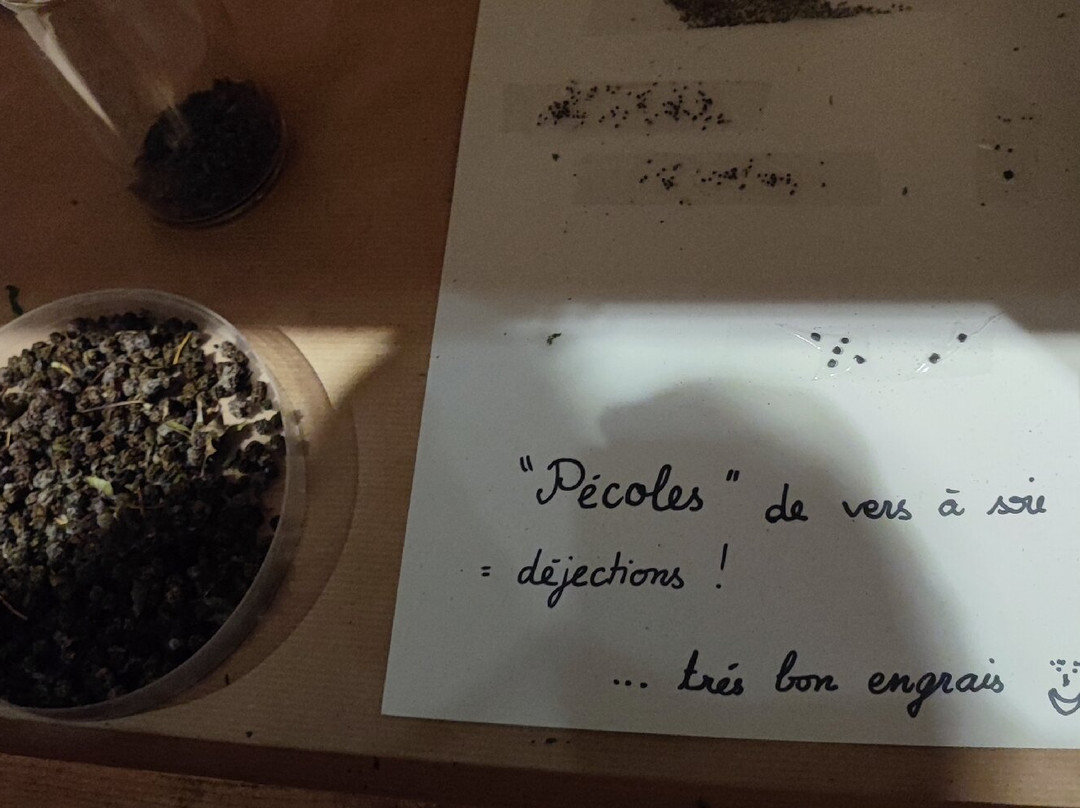 "Pécoles" de vers à soie
= déjections !
... trés bon engrais